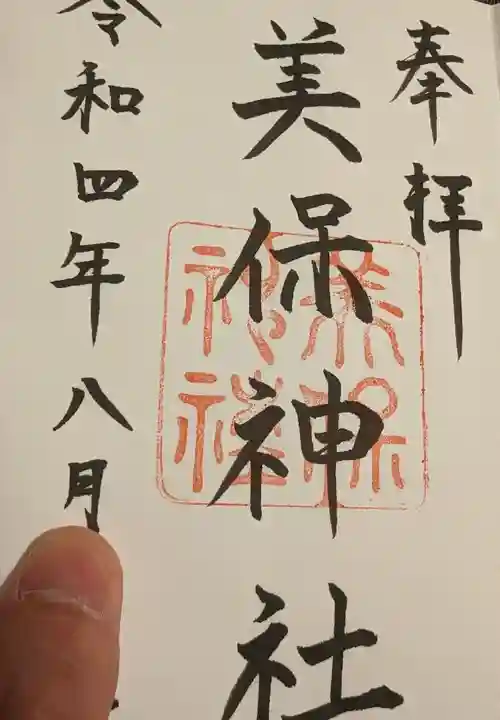 奉拝
美保神社
令和四年八月